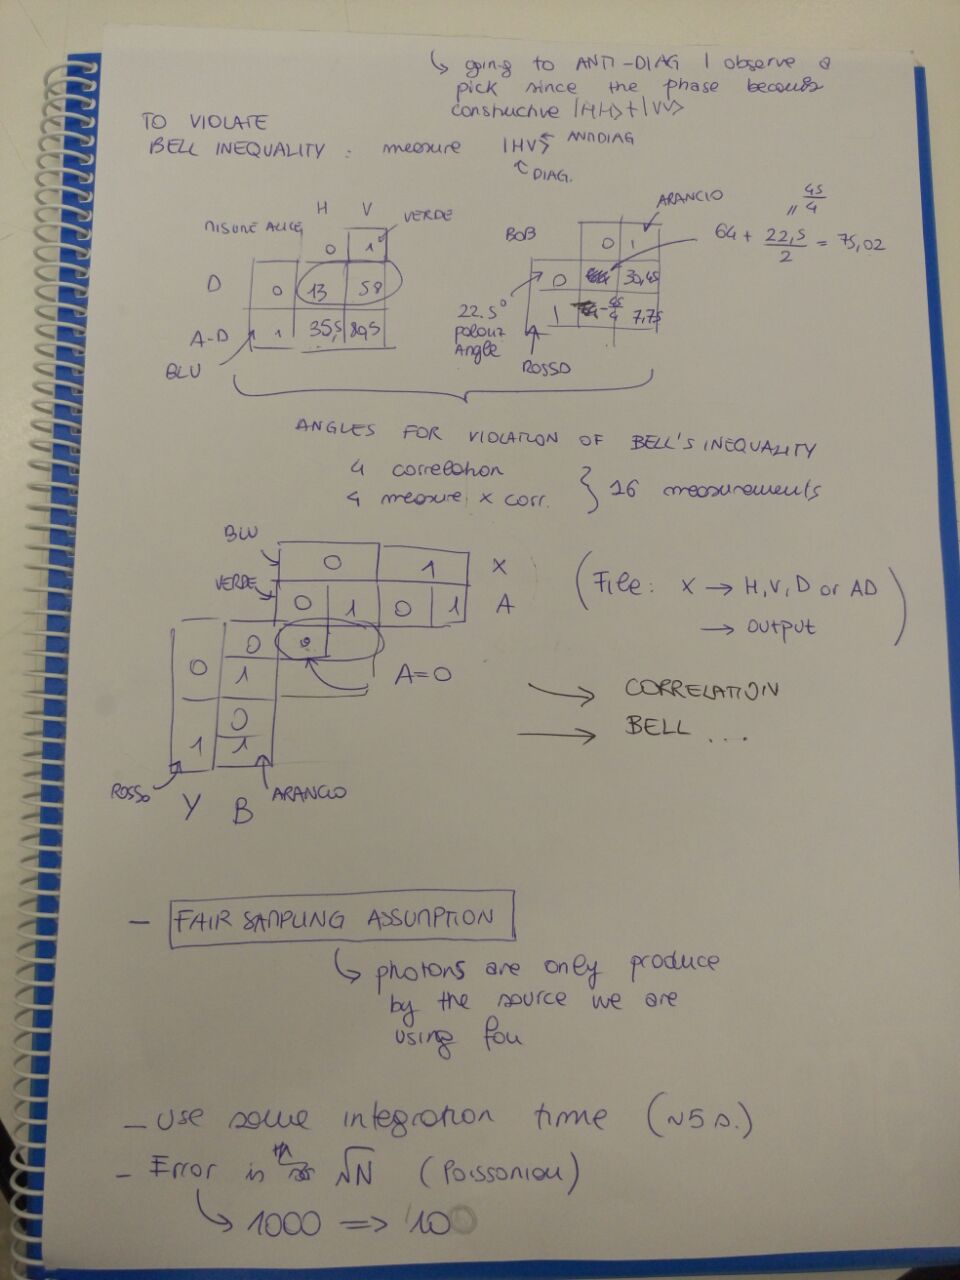 ↳ going to ANTI-DIAG I observe a
pick since the phase becomes
constructive |HH>+|VV>
TO VIOLATE
BELL INEQUALITY : measure |HV> ← ANTIDIAG
↖ DIAG.
MISURE ALICE
H V
VERDE
0 1
D 0 13 58
A-D 1 35,5 80,5
BLU
BOB
ARANCIO
0 1
0 30,45
1 45/4 7,75
22.5°
polariz
Angle
ROSSO
" 45/4
64 + 22,5/2 = 75,02
ANGLES FOR VIOLATION OF BELL'S INEQUALITY
4 correlation
4 measure x corr.
} 16 measurements
BLU 0 1 X
VERDE 0 1 0 1 A
0 0
1
1 0
1
A=0
ROSSO Y B ARANCIO
(File: X → H,V,D or AD
→ output)
→ CORRELATION
→ BELL ...
- FAIR SAMPLING ASSUMPTION
↳ photons are only produce
by the source we are
using for
- Use some integration time (~5 s.)
- Error is √N (Poissonian)
↳ 1000 => 10